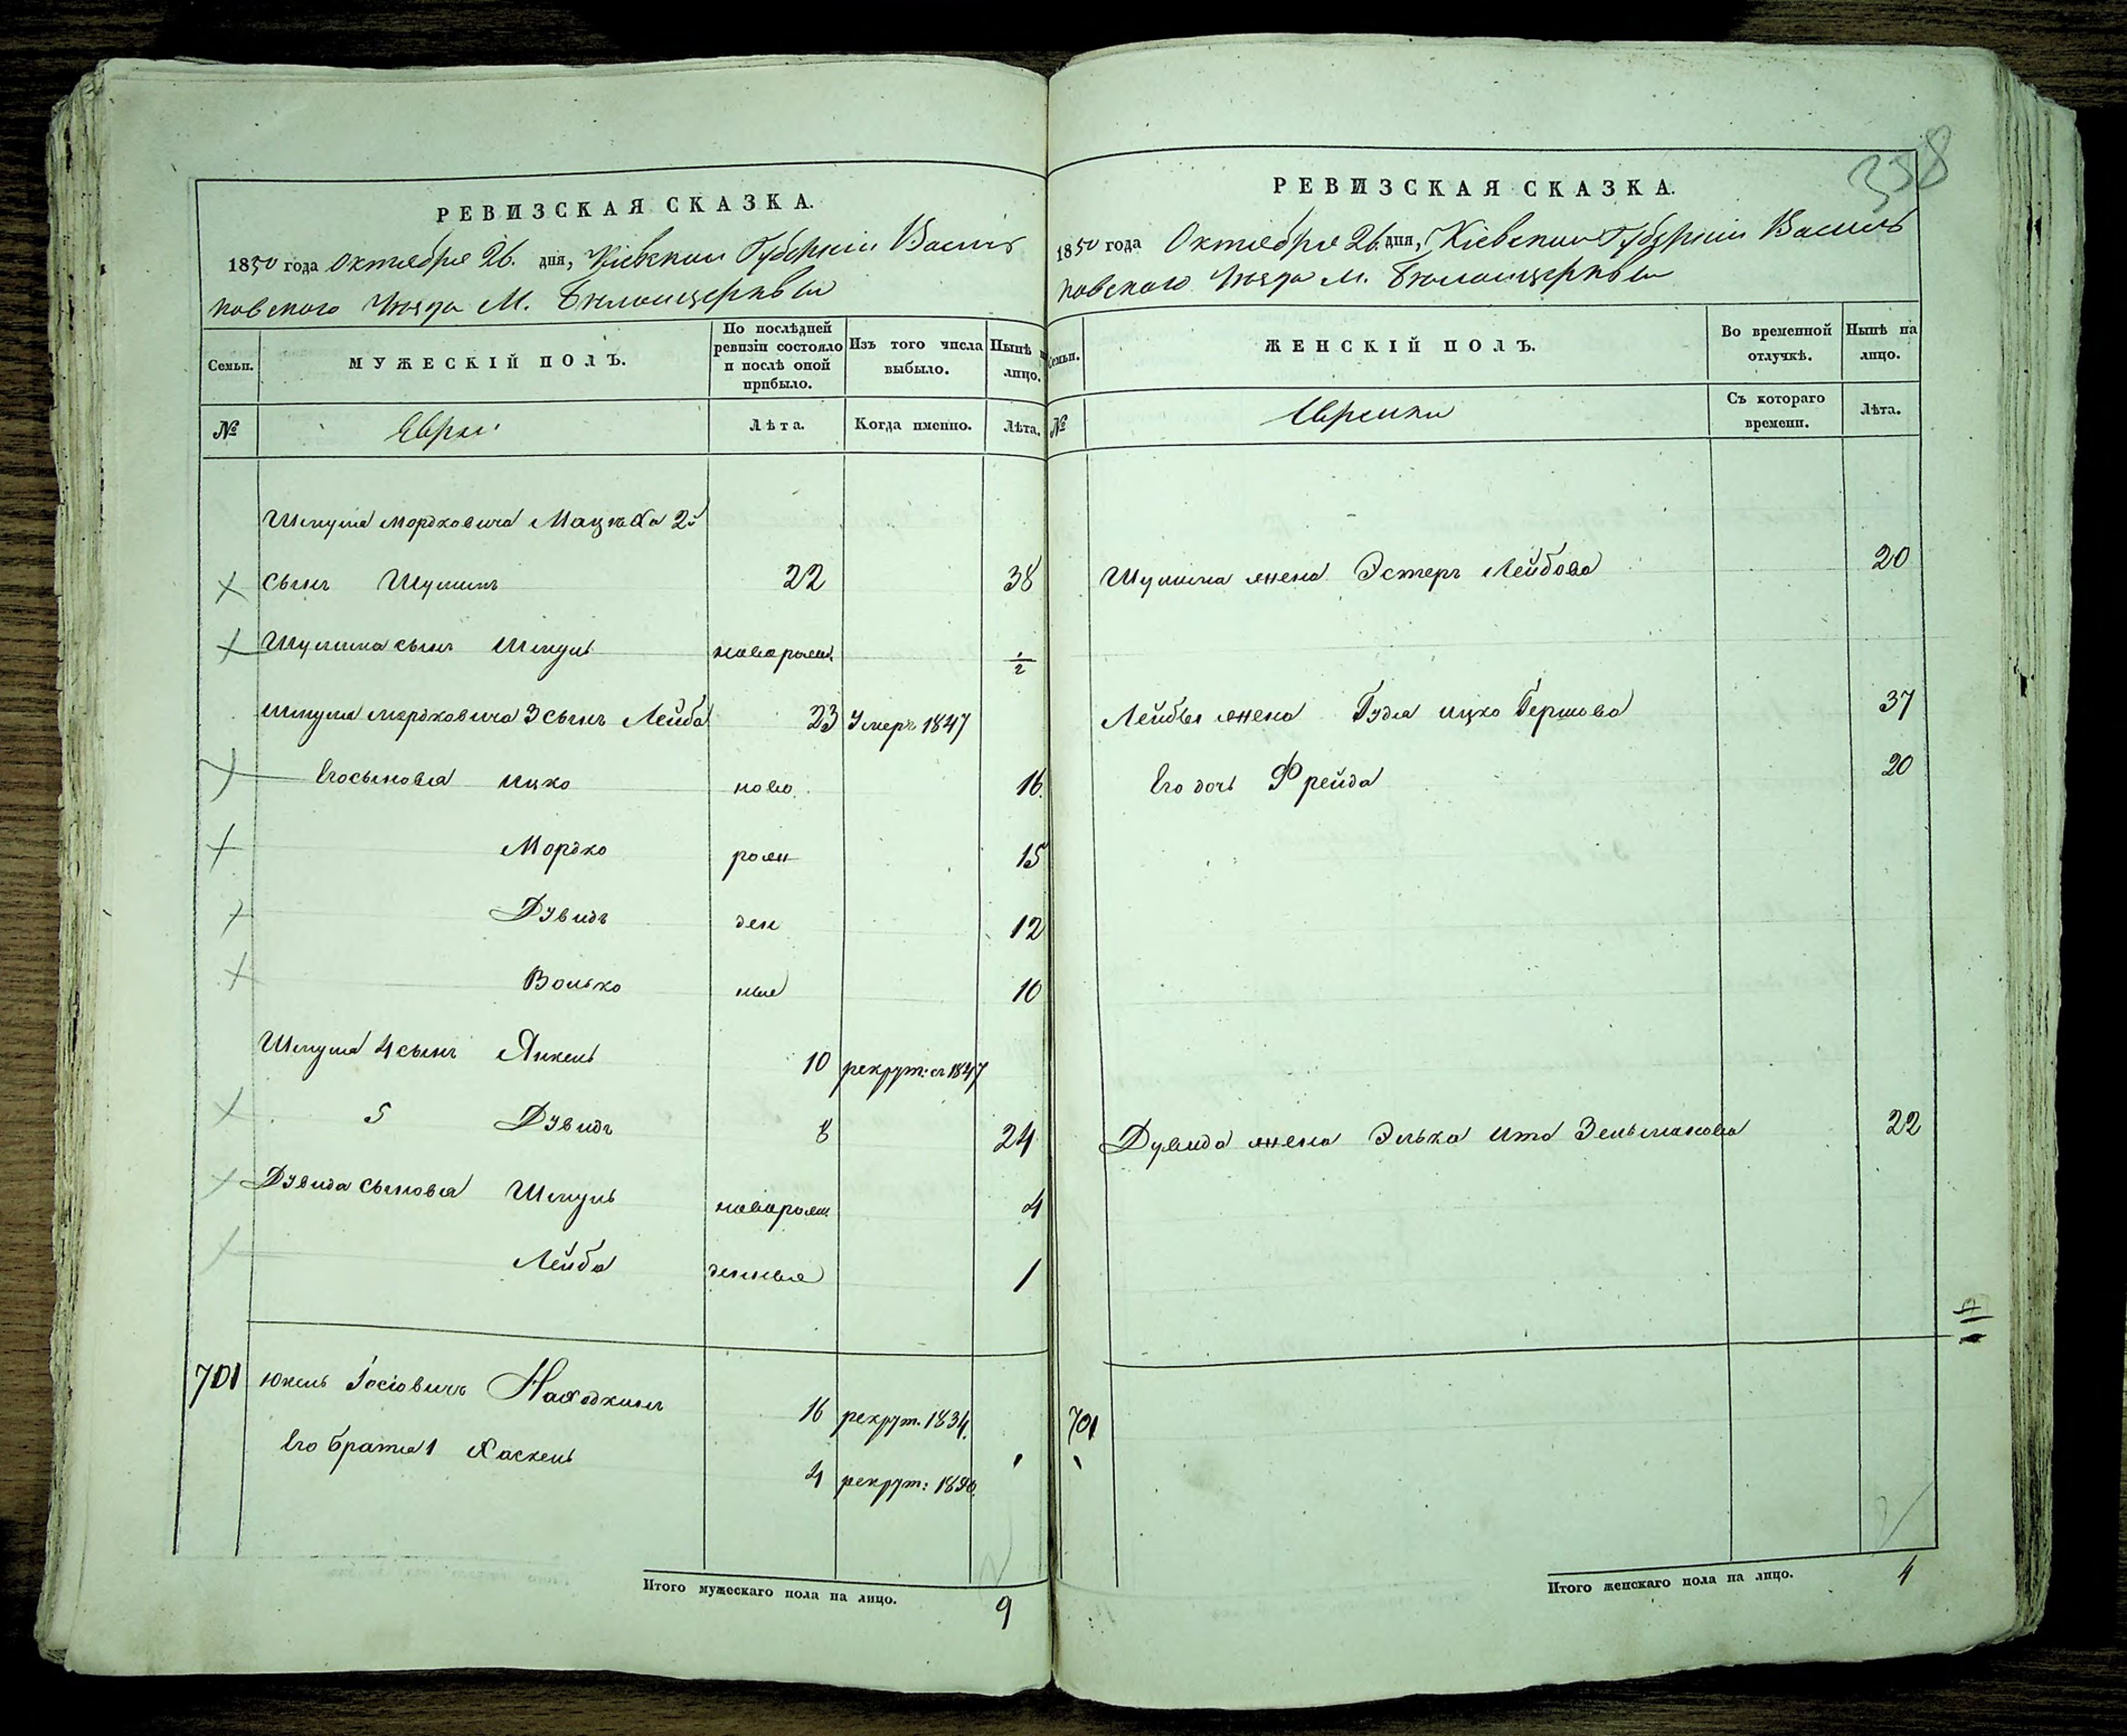 РЕВИЗСКАЯ СКАЗКА.
1850 года Октября 26. дня, Кіевской Губерніи Василь
ковского Уезда М. Белоицеркви
Семьи.
МУЖЕСКІЙ ПОЛЪ.
По послѣдней ревизіи состояло и послѣ оной прибыло.
Изъ того числа выбыло.
Нынѣ на лицо.
№
Евреи
Лѣта.
Когда именно.
Лѣта.
Шмуля Мордковича 2й
сынъ Шулимъ 22 38
Шулима сынъ Шмуль новорожд. 1/2
Шмуля Мордковича 3 сынъ Лейба 23 Умеръ 1847
Его сыновья Ицко ново 16.
Мордко рож 15
Дувидъ ден 12
Волько ные 10
Шмуля 4 сынъ Янкель 10 рекрут: въ 1847
5 Дувидъ 8 24
Дувида сыновья Шмуль новорож 4
Лейба денные 1
701 Юкель Іосіовичъ Находкинъ 16 рекрут. 1834.
Его братья 1 Хаскель 4 рекрут:
Итого мужескаго пола на лицо. 9
358
РЕВИЗСКАЯ СКАЗКА.
1850 года Октября 26. дня, Кіевской Губерніи Василь
ковского Уезда М. Белоицеркви
Семьи.
ЖЕНСКІЙ ПОЛЪ.
Во временной отлучкѣ.
Нынѣ на лицо.
№
Еврейки
Съ котораго времени.
Лѣта.
Шулима жена Эстеръ Лейбова 20
Лейбы жена Гудля Ицко Гершова 37
Его дочь Фрейда 20
Дувида жена Элька Ита Зельманова 22
701
Итого женскаго пола на лицо. 4